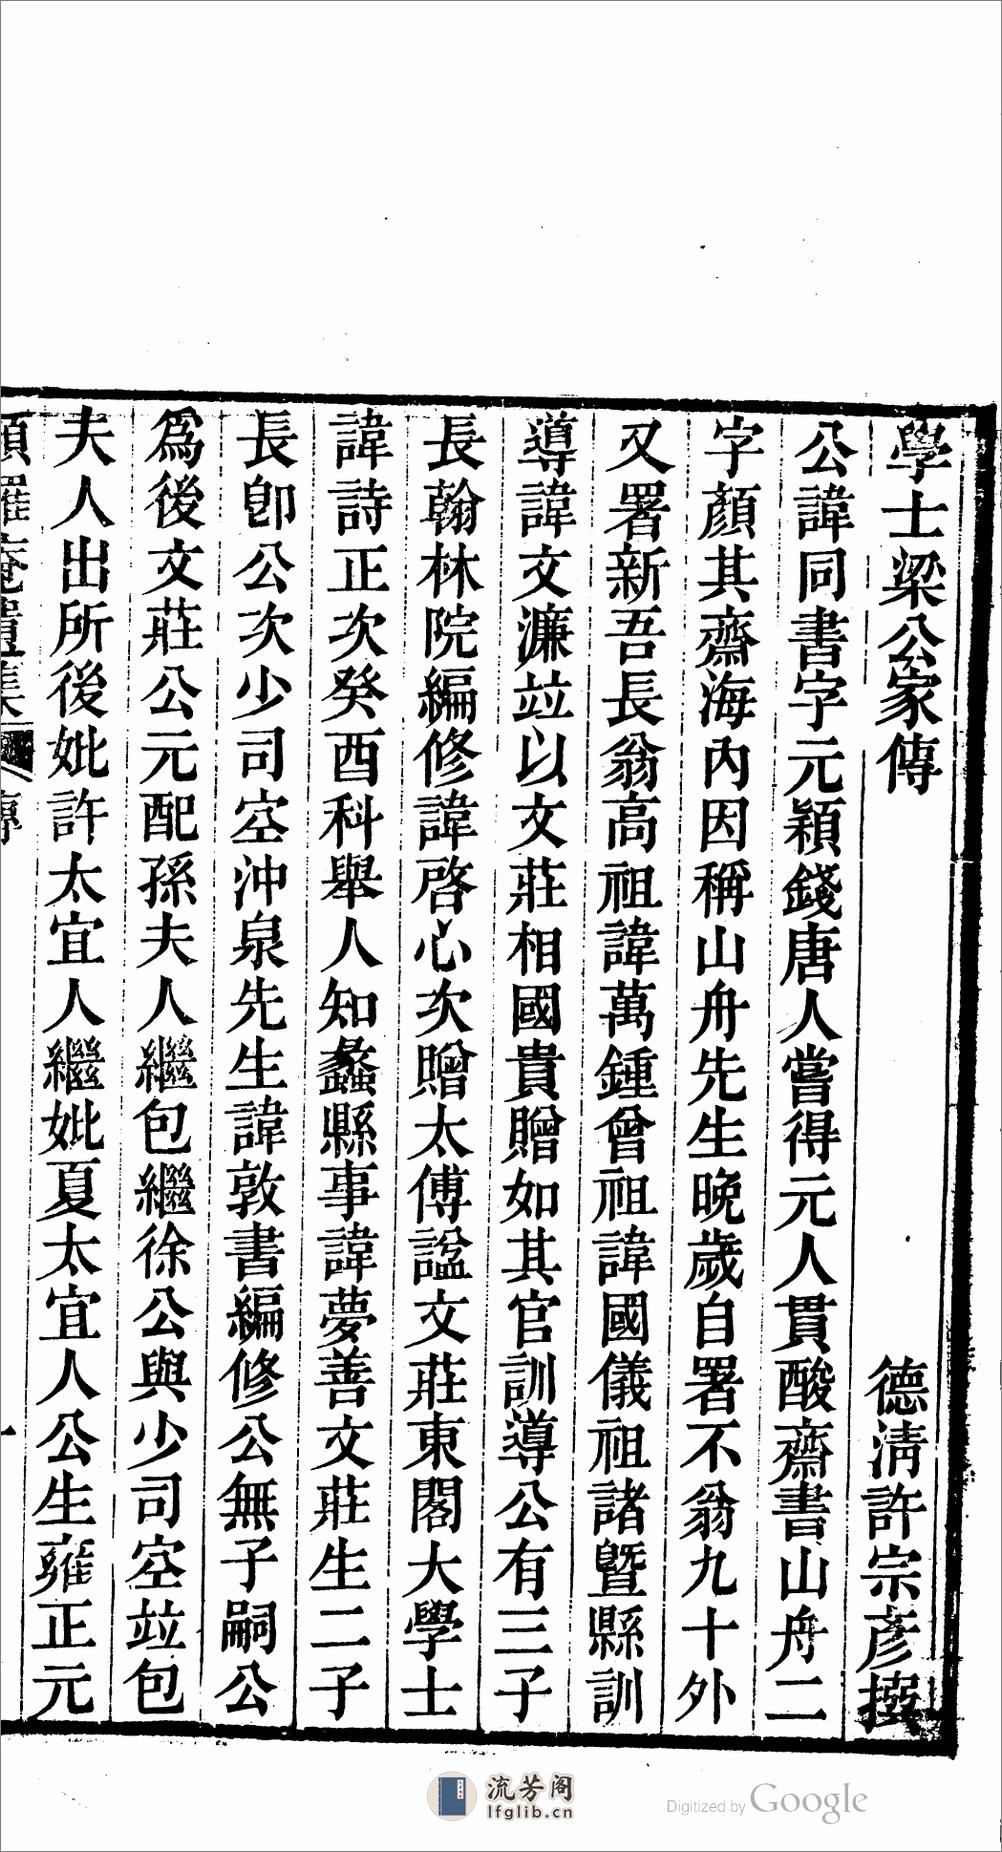 學士梁公家傳
德淸許宗彥撰
公諱同書字元穎錢唐人嘗得元人貫酸齋書山舟二
字顏其齋海內因稱山舟先生晚歲自署不翁九十外
又署新吾長翁高祖諱萬鍾曾祖諱國儀祖諸曁縣訓
導諱文濂竝以文莊相國貴贈如其官訓導公有三子
長翰林院編修諱啓心次贈太傅諡文莊東閣大學士
諱詩正次癸酉科舉人知蠡縣事諱夢善文莊生二子
長卽公次少司空沖泉先生諱敦書編修公無子嗣公
爲後文莊公元配孫夫人繼包繼徐公與少司空竝包
夫人出所後妣許太宜人繼妣夏太宜人公生雍正元
頻羅庵遺集
傳
一
流芳阁
lfglib.cn
Digitized by Google